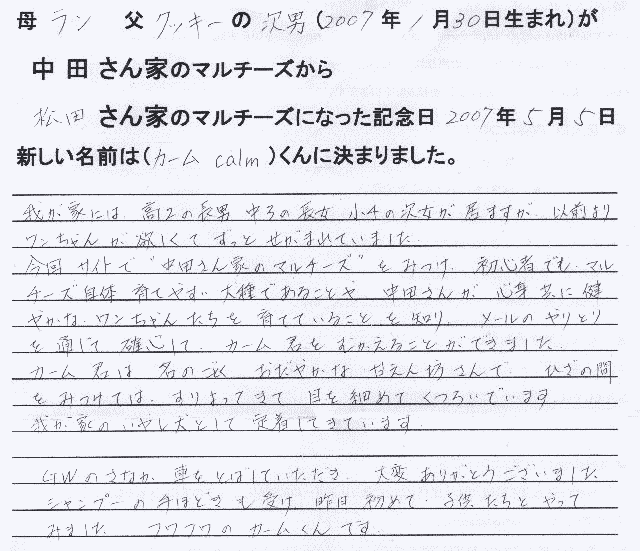 母 ラン 父 クッキーの 次男(2007年 1月30日生まれ)が
中田さん家のマルチーズから
松田 さん家のマルチーズになった記念日 2007年5月5日
新しい名前は(カーム calm)くんに決まりました。
我が家には、高2の長男 中3の長女 小4の次女が居ますが、以前より
ワンちゃんが欲しくて ずっと せがまれていました。
今回 サイトで "中田さん家のマルチーズ" を みつけ、初心者でも、マル
チーズ自体 育てやすい犬種であることや 中田さんが 心身共に健
やかな、ワンちゃんたちを 育てていること を知り、メールのやりとり
を通じて 確心して、カーム君を むかえることができました。
カーム君は 名のごとく おだやかな 甘えん坊さんで ひざの間
をみつけては、すりよってきて 目を細めてくつろいでいます
我が家の いやし犬として 定着してきています。
GWのさなか 車をとばしていただき、大変ありがとうございました。
シャンプーの手ほどきも受け、昨日 初めて、子供たちとやって
みました フワフワの カームくんです。